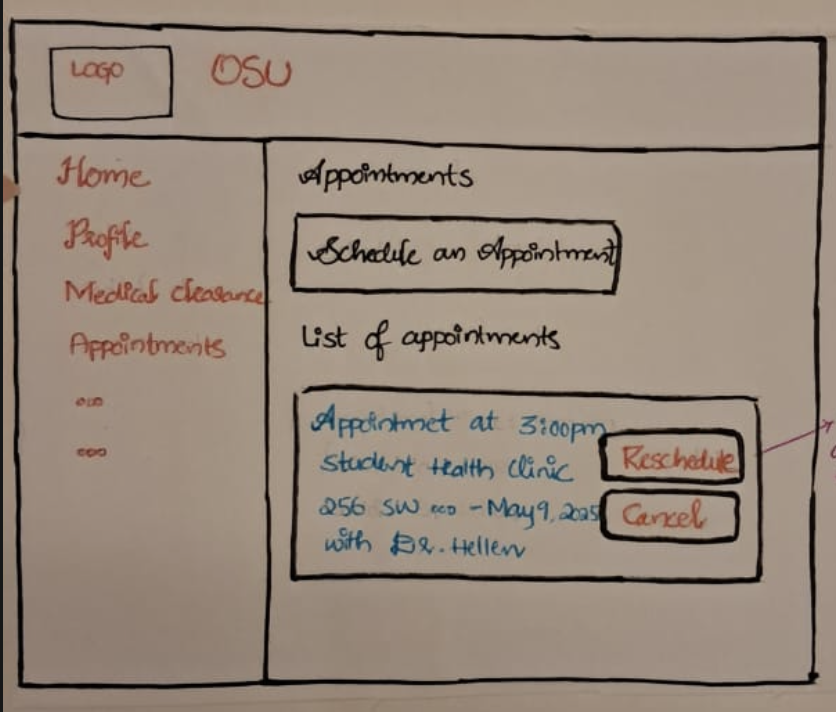 LOGO
OSU
Home
Profile
Medical clearance
Appointments
ooo
ooo
Appointments
Schedule an Appointment
List of appointments
Appointmet at 3:00pm
Student Health Clinic
256 SW ooo - May 9, 2025
with Dr. Hellen
Reschedule
Cancel